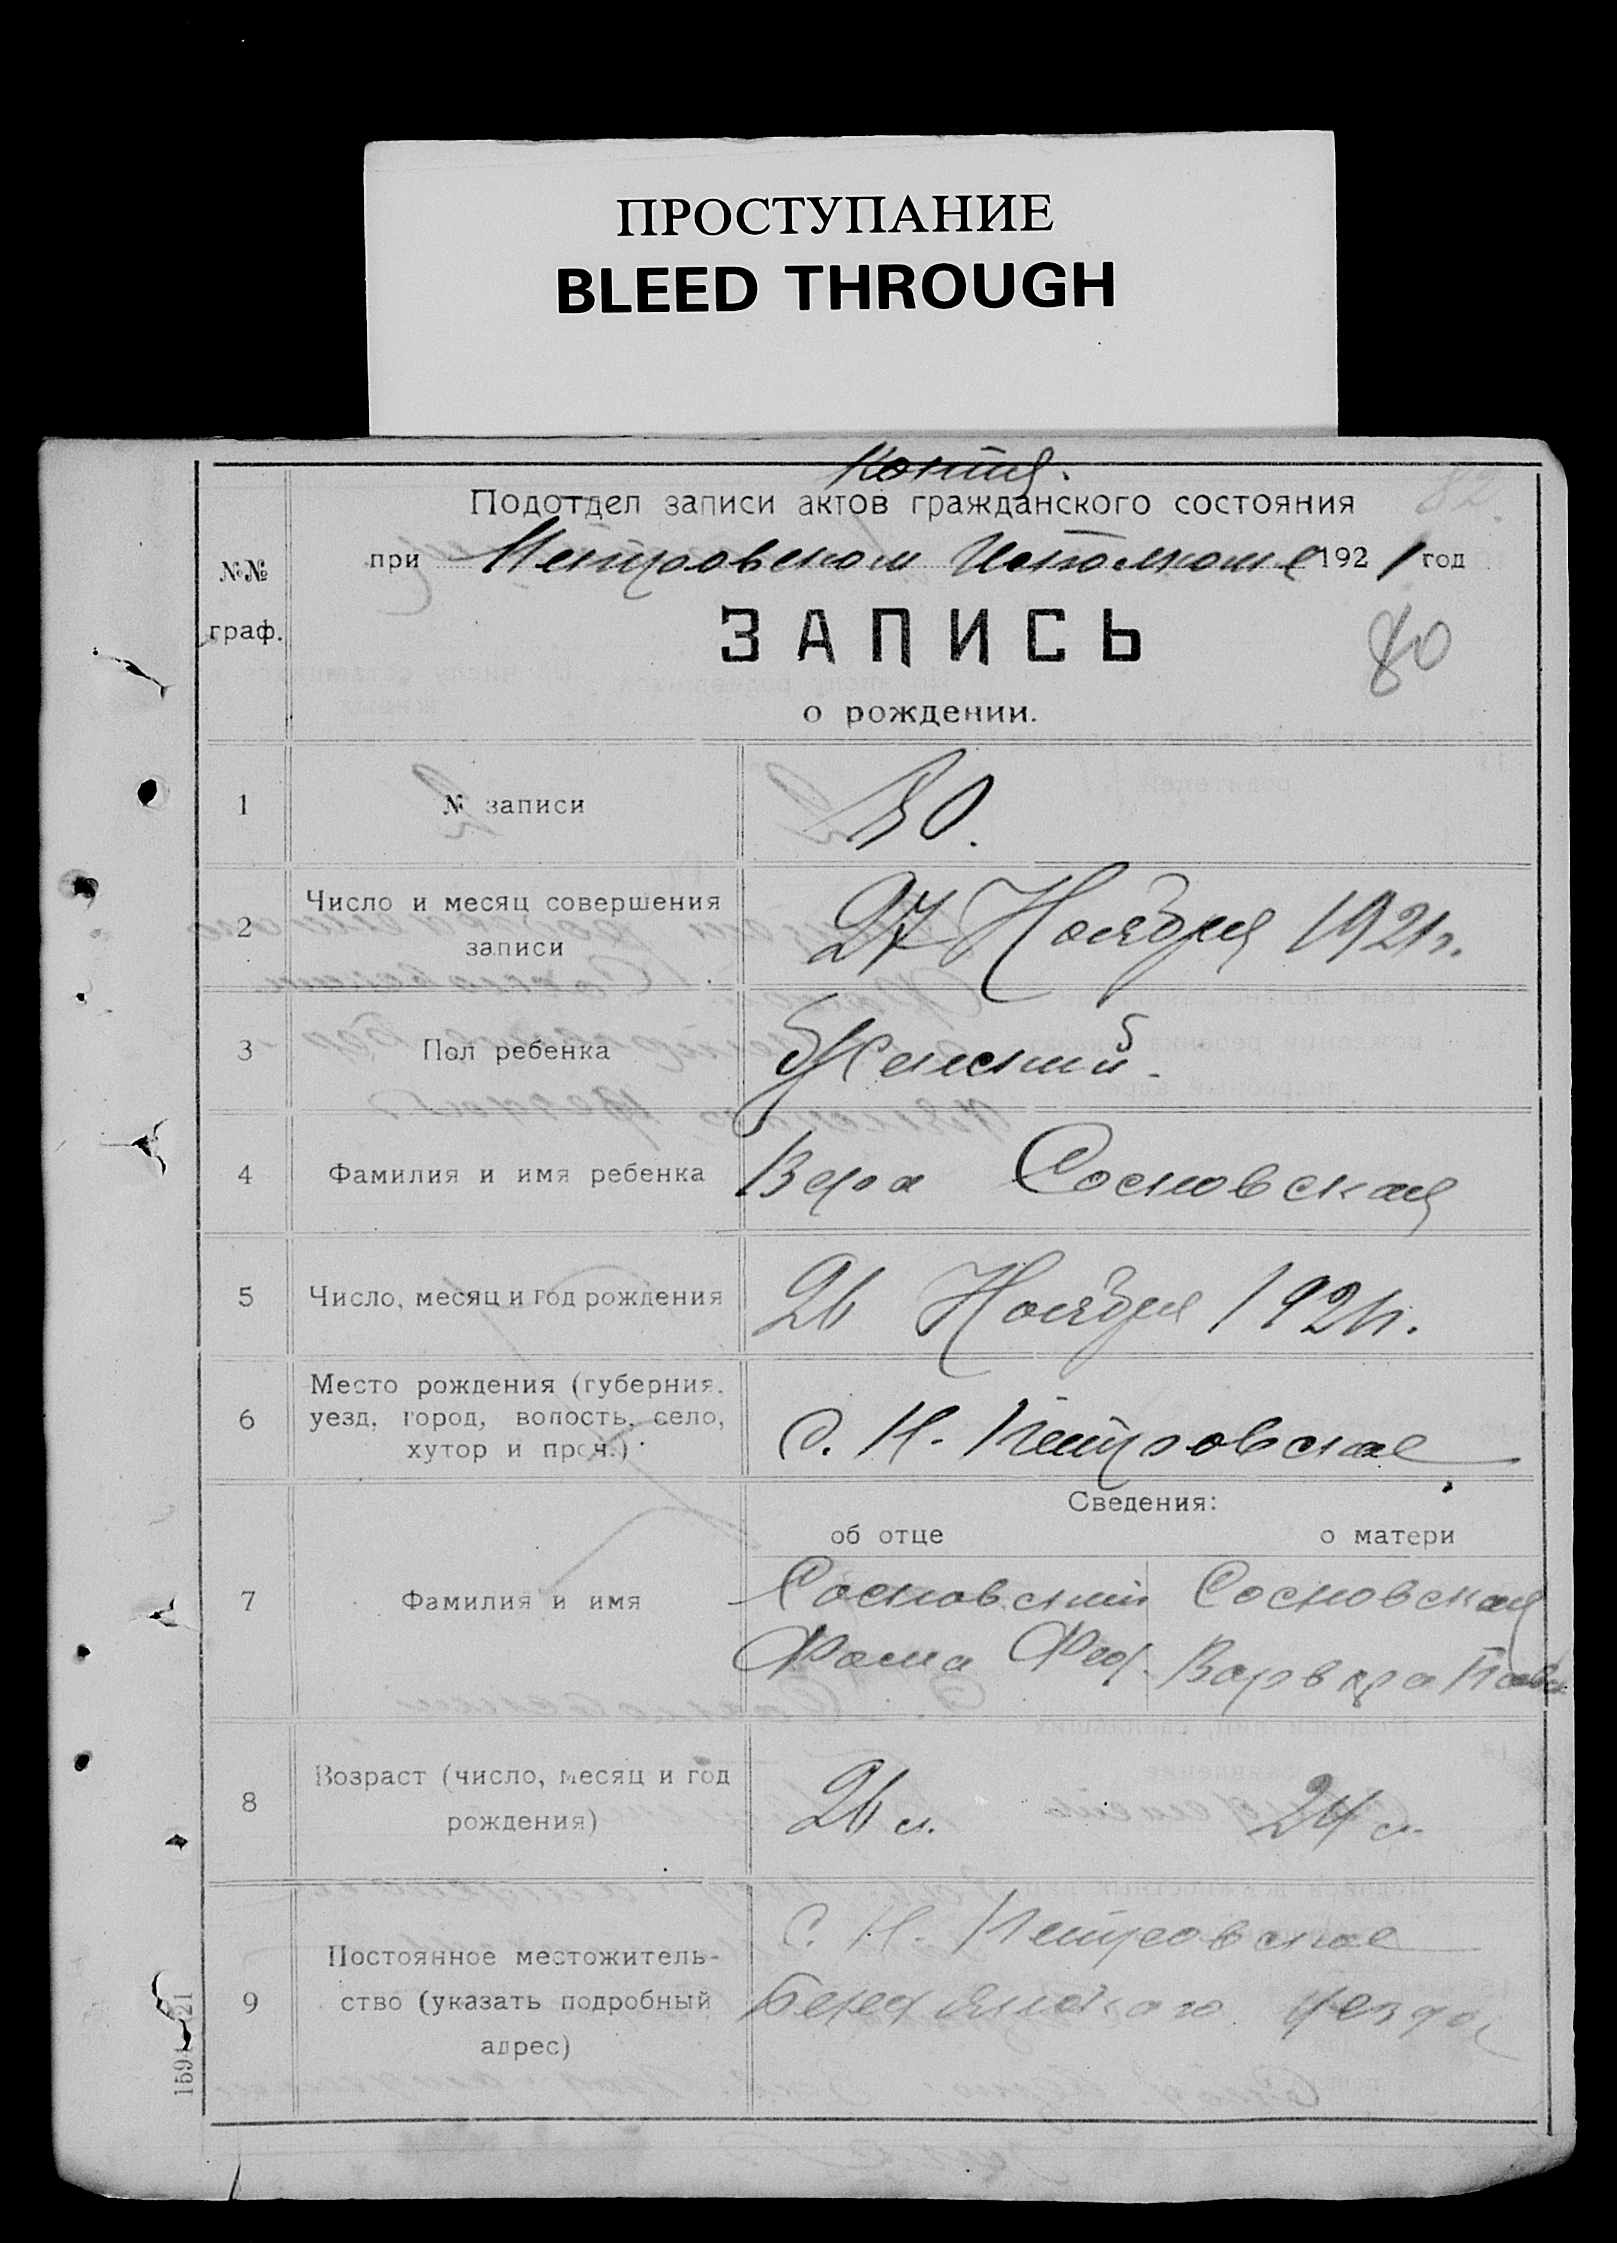 ПРОСТУПАНИЕ
BLEED THROUGH
Копия.
Подотдел записи актов гражданского состояния
82.
при Петровском Исполкоме 1921 год
№№
граф.
ЗАПИСЬ
80
о рождении.
1 № записи 80.
2 Число и месяц совершения
записи
27 Ноября 1921 г.
3 Пол ребенка Женский.
4 Фамилия и имя ребенка Вера Сосновская
5 Число, месяц и год рождения 26 Ноября 1921 г.
6 Место рождения (губерния,
уезд, город, волость, село,
хутор и проч.)
с. Н. Петровское
Сведения:
об отце о матери
7 Фамилия и имя
Сосновский Сосновская
Фома Варвара
8 Возраст (число, месяц и год
рождения)
26 л. 24 л.
9 Постоянное местожитель-
ство (указать подробный
адрес)
с. Н. Петровское
Бердянского уезда